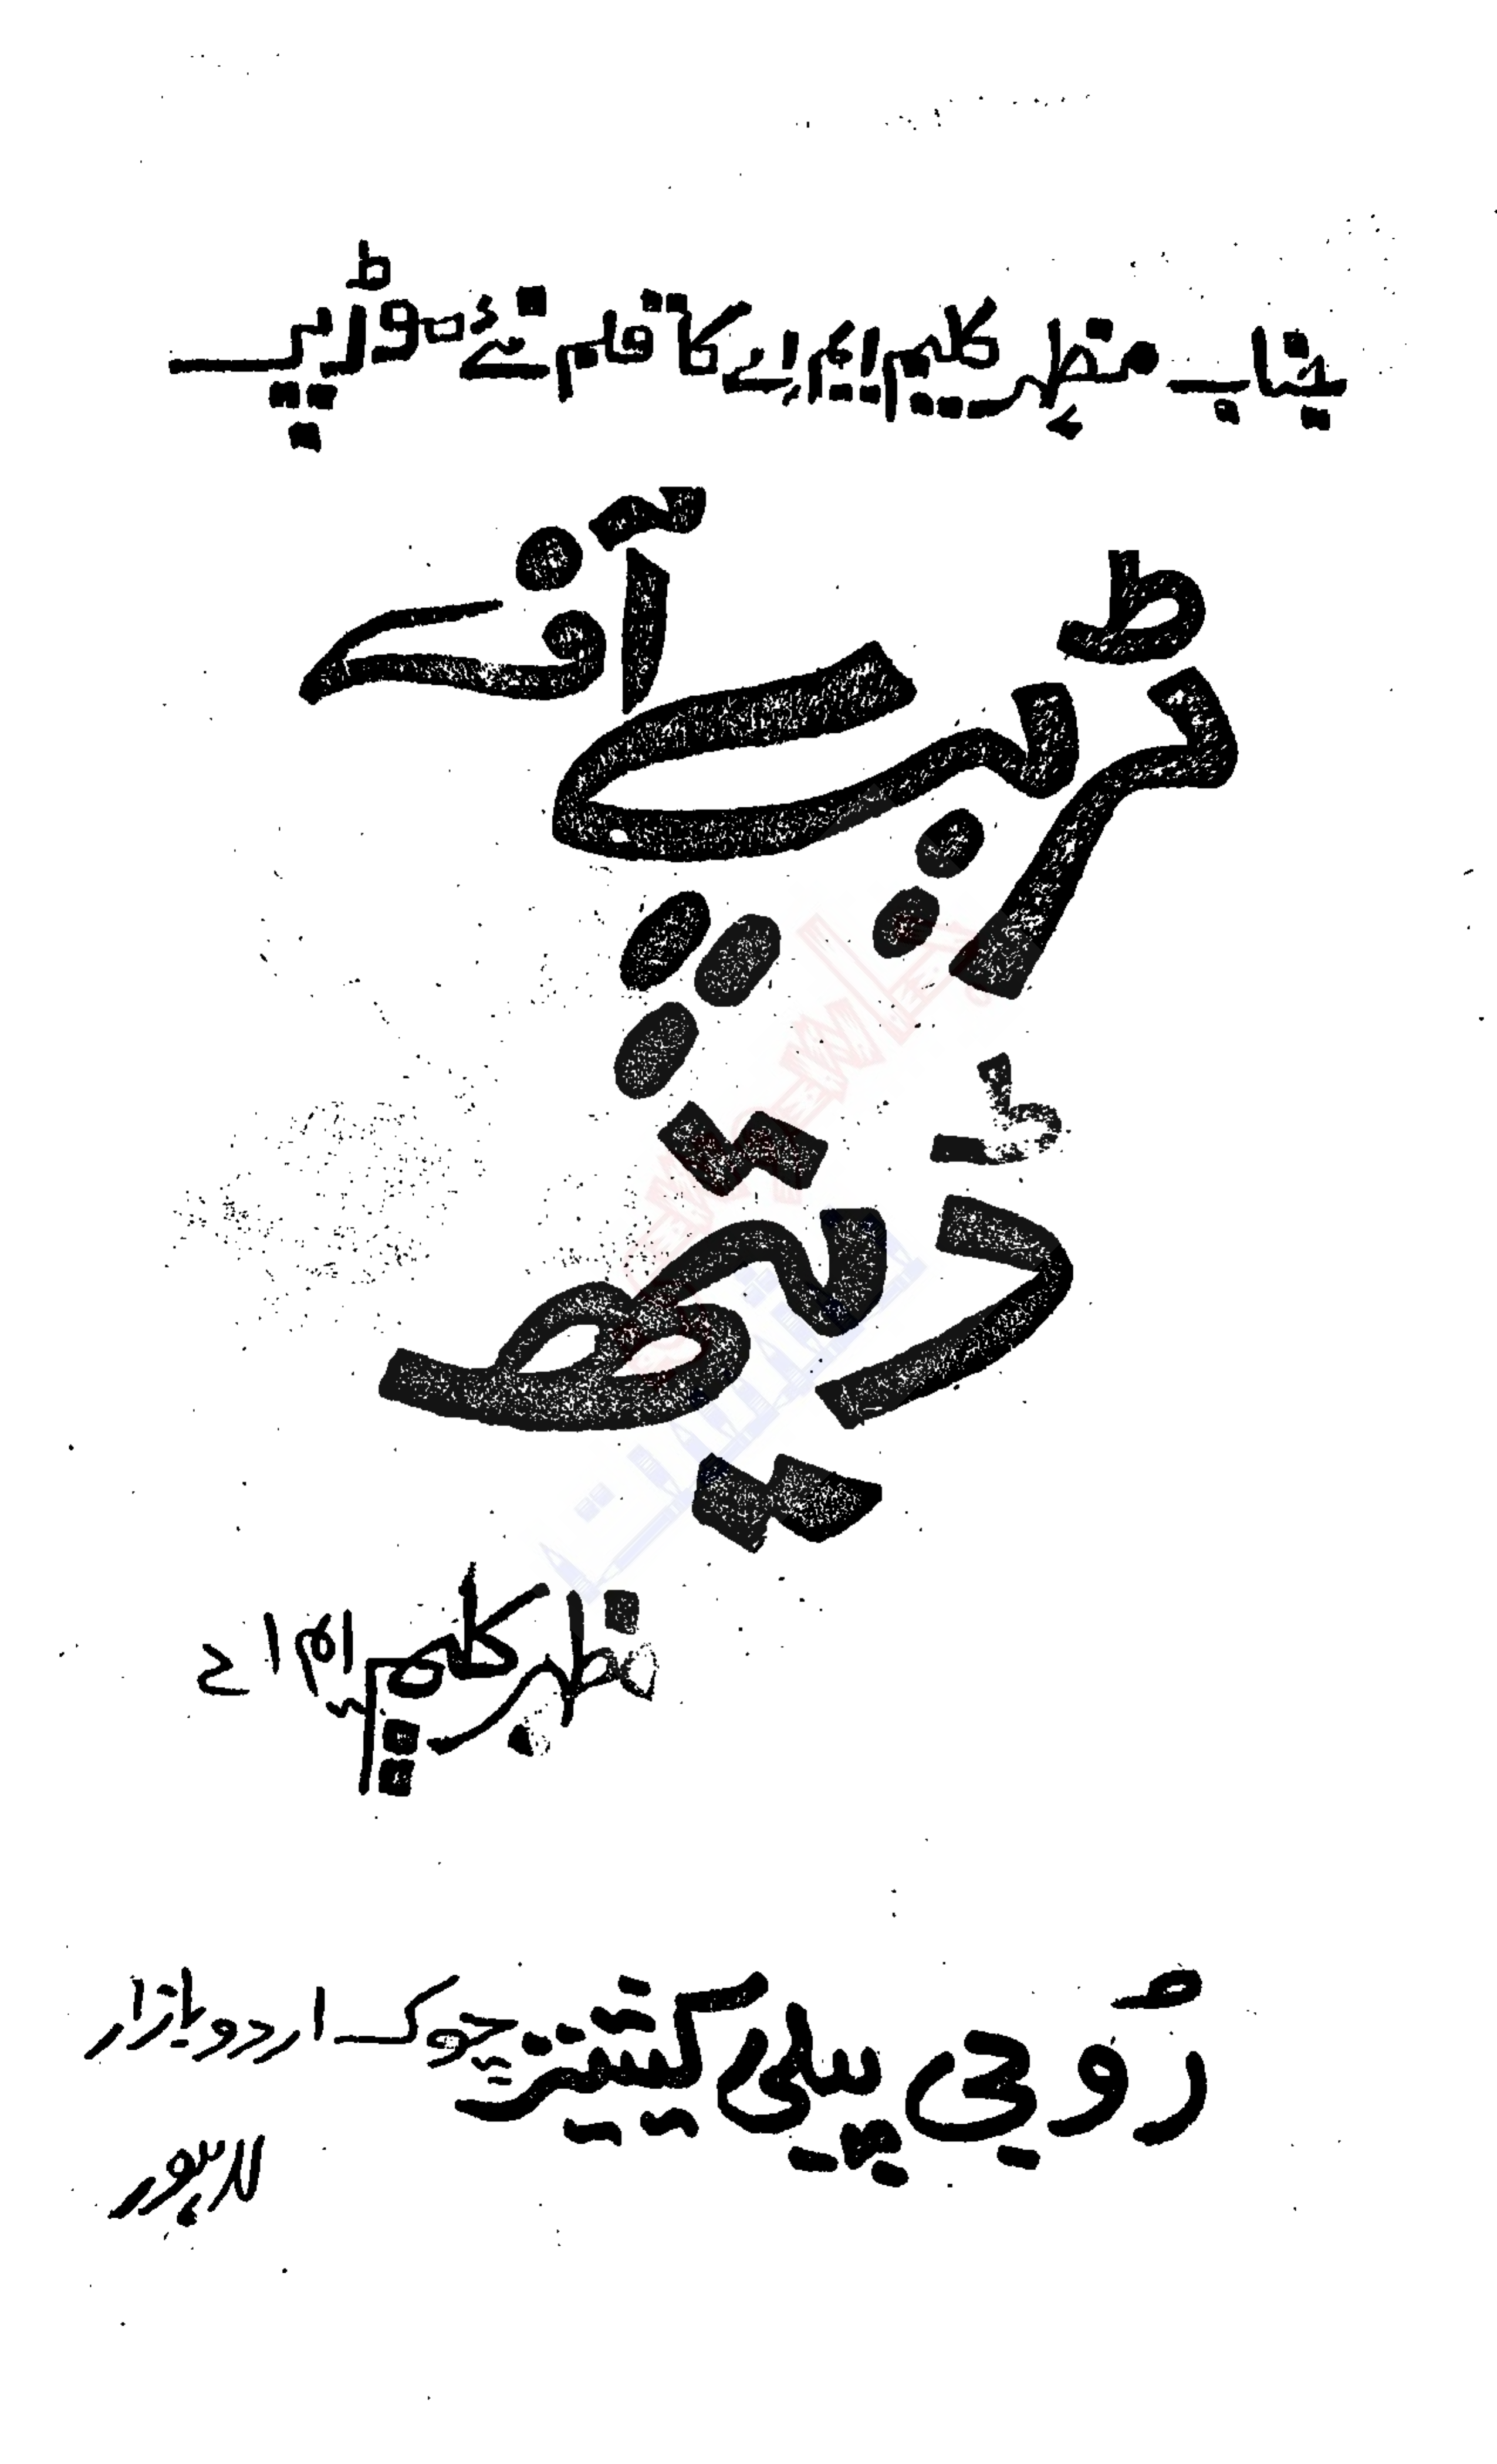 جناب مظہر کلیم ایم اے کا قلم نئے موڑ پر
ٹریپ آف
ڈیتھ
مظہر کلیم ایم اے
رُوبی پبلی کیشنز چوک اردو بازار
لاہور